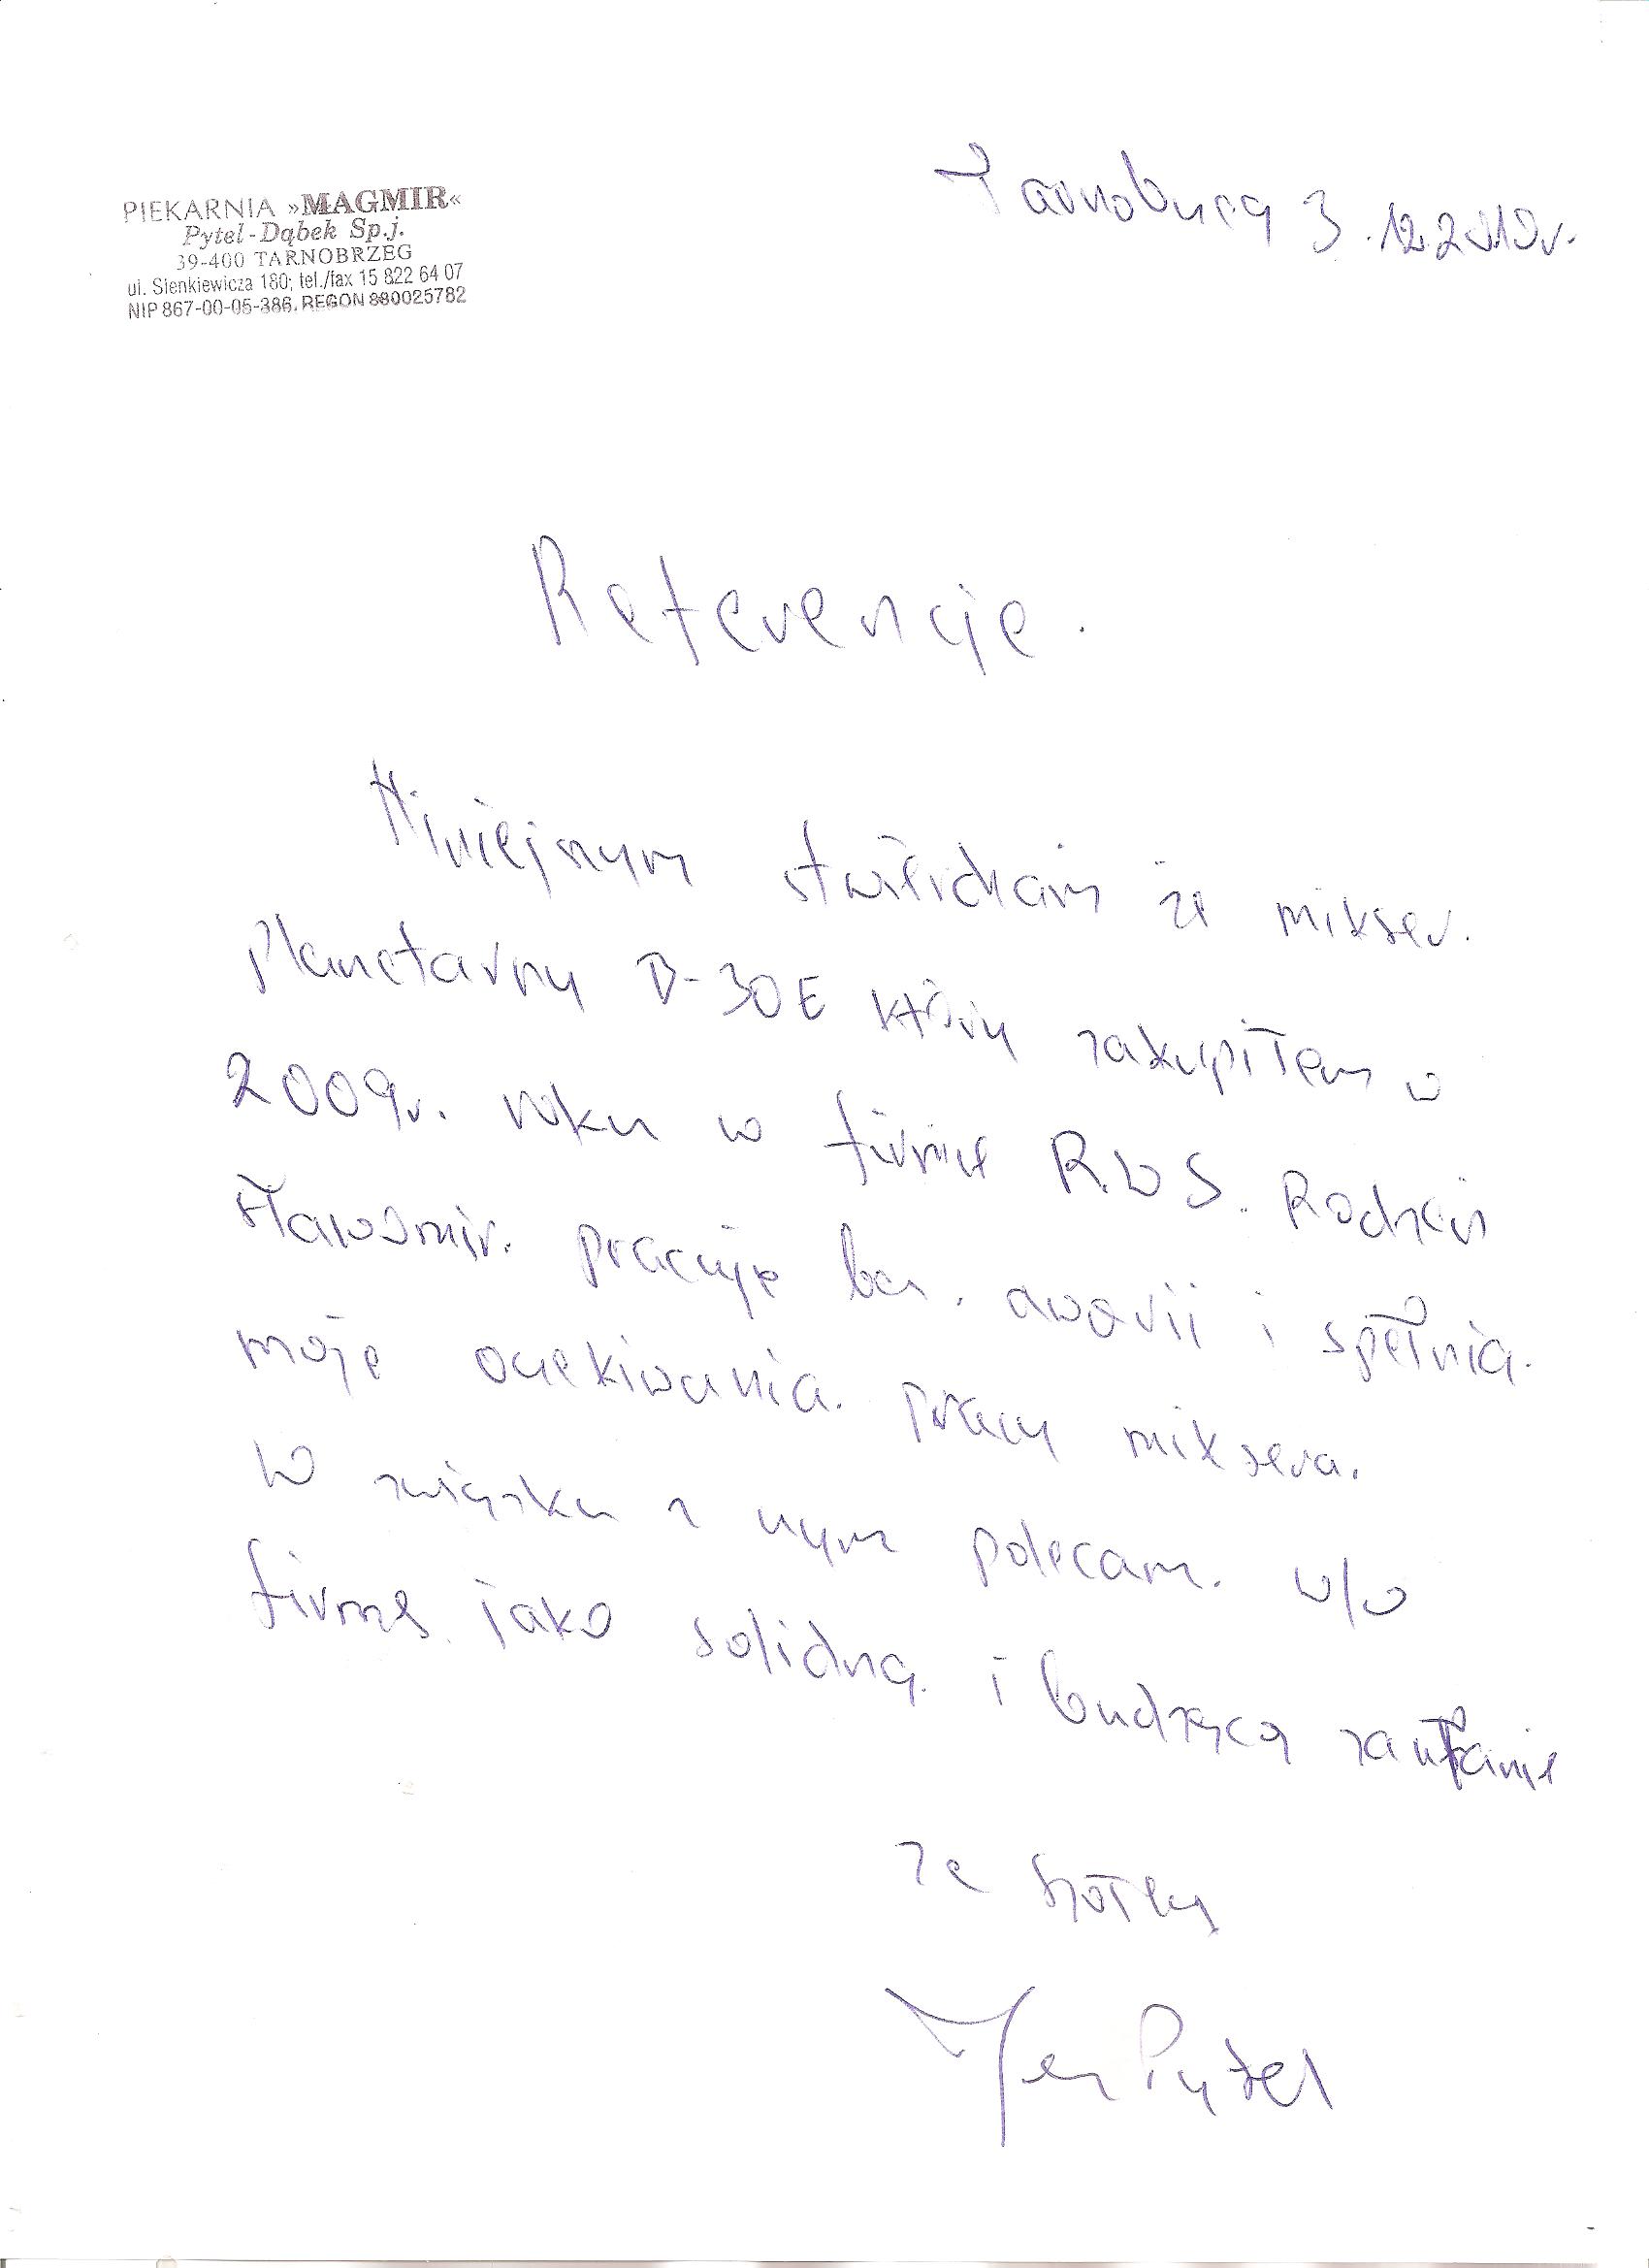 PIEKARNIA »MAGMIR«
Pytel-Dąbek Sp.j.
39-400 TARNOBRZEG
ul. Sienkiewicza 180; tel./fax 15 822 64 07
NIP 867-00-05-386, REGON 830025782
Tarnobrzeg 3.12.2010r.
Referencje.
Niniejszym stwierdzam że mikser.
Planetarny B-30E który zakupiłem w
2009r. roku w firmie R.W.S. Rodzeń
Sławomir. pracuje bez. awarii i spełnia.
moje oczekiwania. pracy miksera.
W związku z czym polecam. w/o
firmę. jako solidną. i budzącą zaufanie
Ze spółki
Jan Pytel